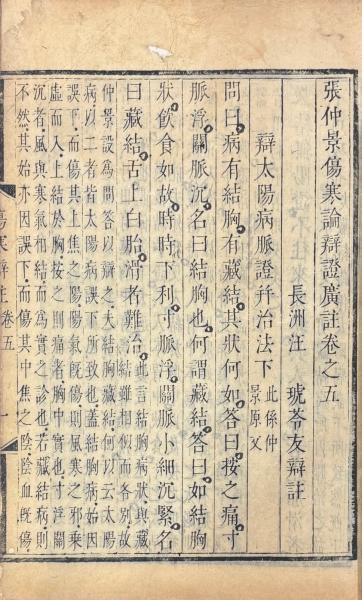 張仲景傷寒論辯證廣註卷之五
長洲汪　琥苓友辯註
辯太陽病脈證幷治法下
此係仲
景原文
問曰病有結胸有藏結其狀何如答曰按之痛寸
脈浮關脈沉名曰結胸也何謂藏結答曰如結胸
狀飲食如故時時下利寸脈浮關脈小細沉緊名
曰藏結舌上白胎滑者難治
此言結胸病狀與藏
結雖相似而各別故
仲景設為問答以辯之夫結胸藏結何以云太陽
病以二者皆太陽病誤下所致也蓋結胸病始因
誤下而傷其上焦之陽陽氣既傷則風寒之邪乘
虛而入上結於胸按之則痛者胸中實也寸浮關
沉者風與寒氣相結而為實之診也若藏結病則
不然其始亦因誤下而傷其中焦之陰陰血既傷
傷寒辯註　卷五　一